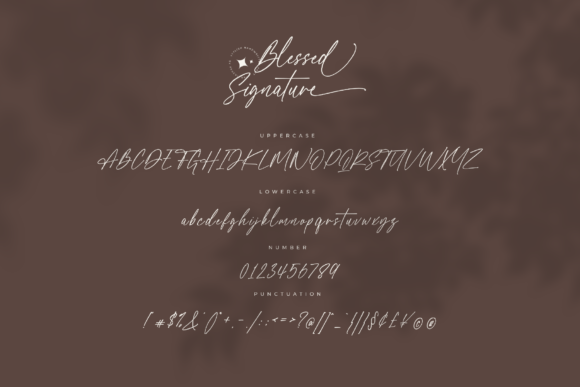 Blessed
Signature
UPPERCASE
ABCDEFGHIJKLMNOPQRSTUVWXYZ
LOWERCASE
abcdefghijklmnopqrstuvwxyz
NUMBER
0123456789
PUNCTUATION
! # $ % & ' () * + , - . / : ; < = > ? @ [ ] ^ _ ` { | } § ¢ £ ¥ © ®